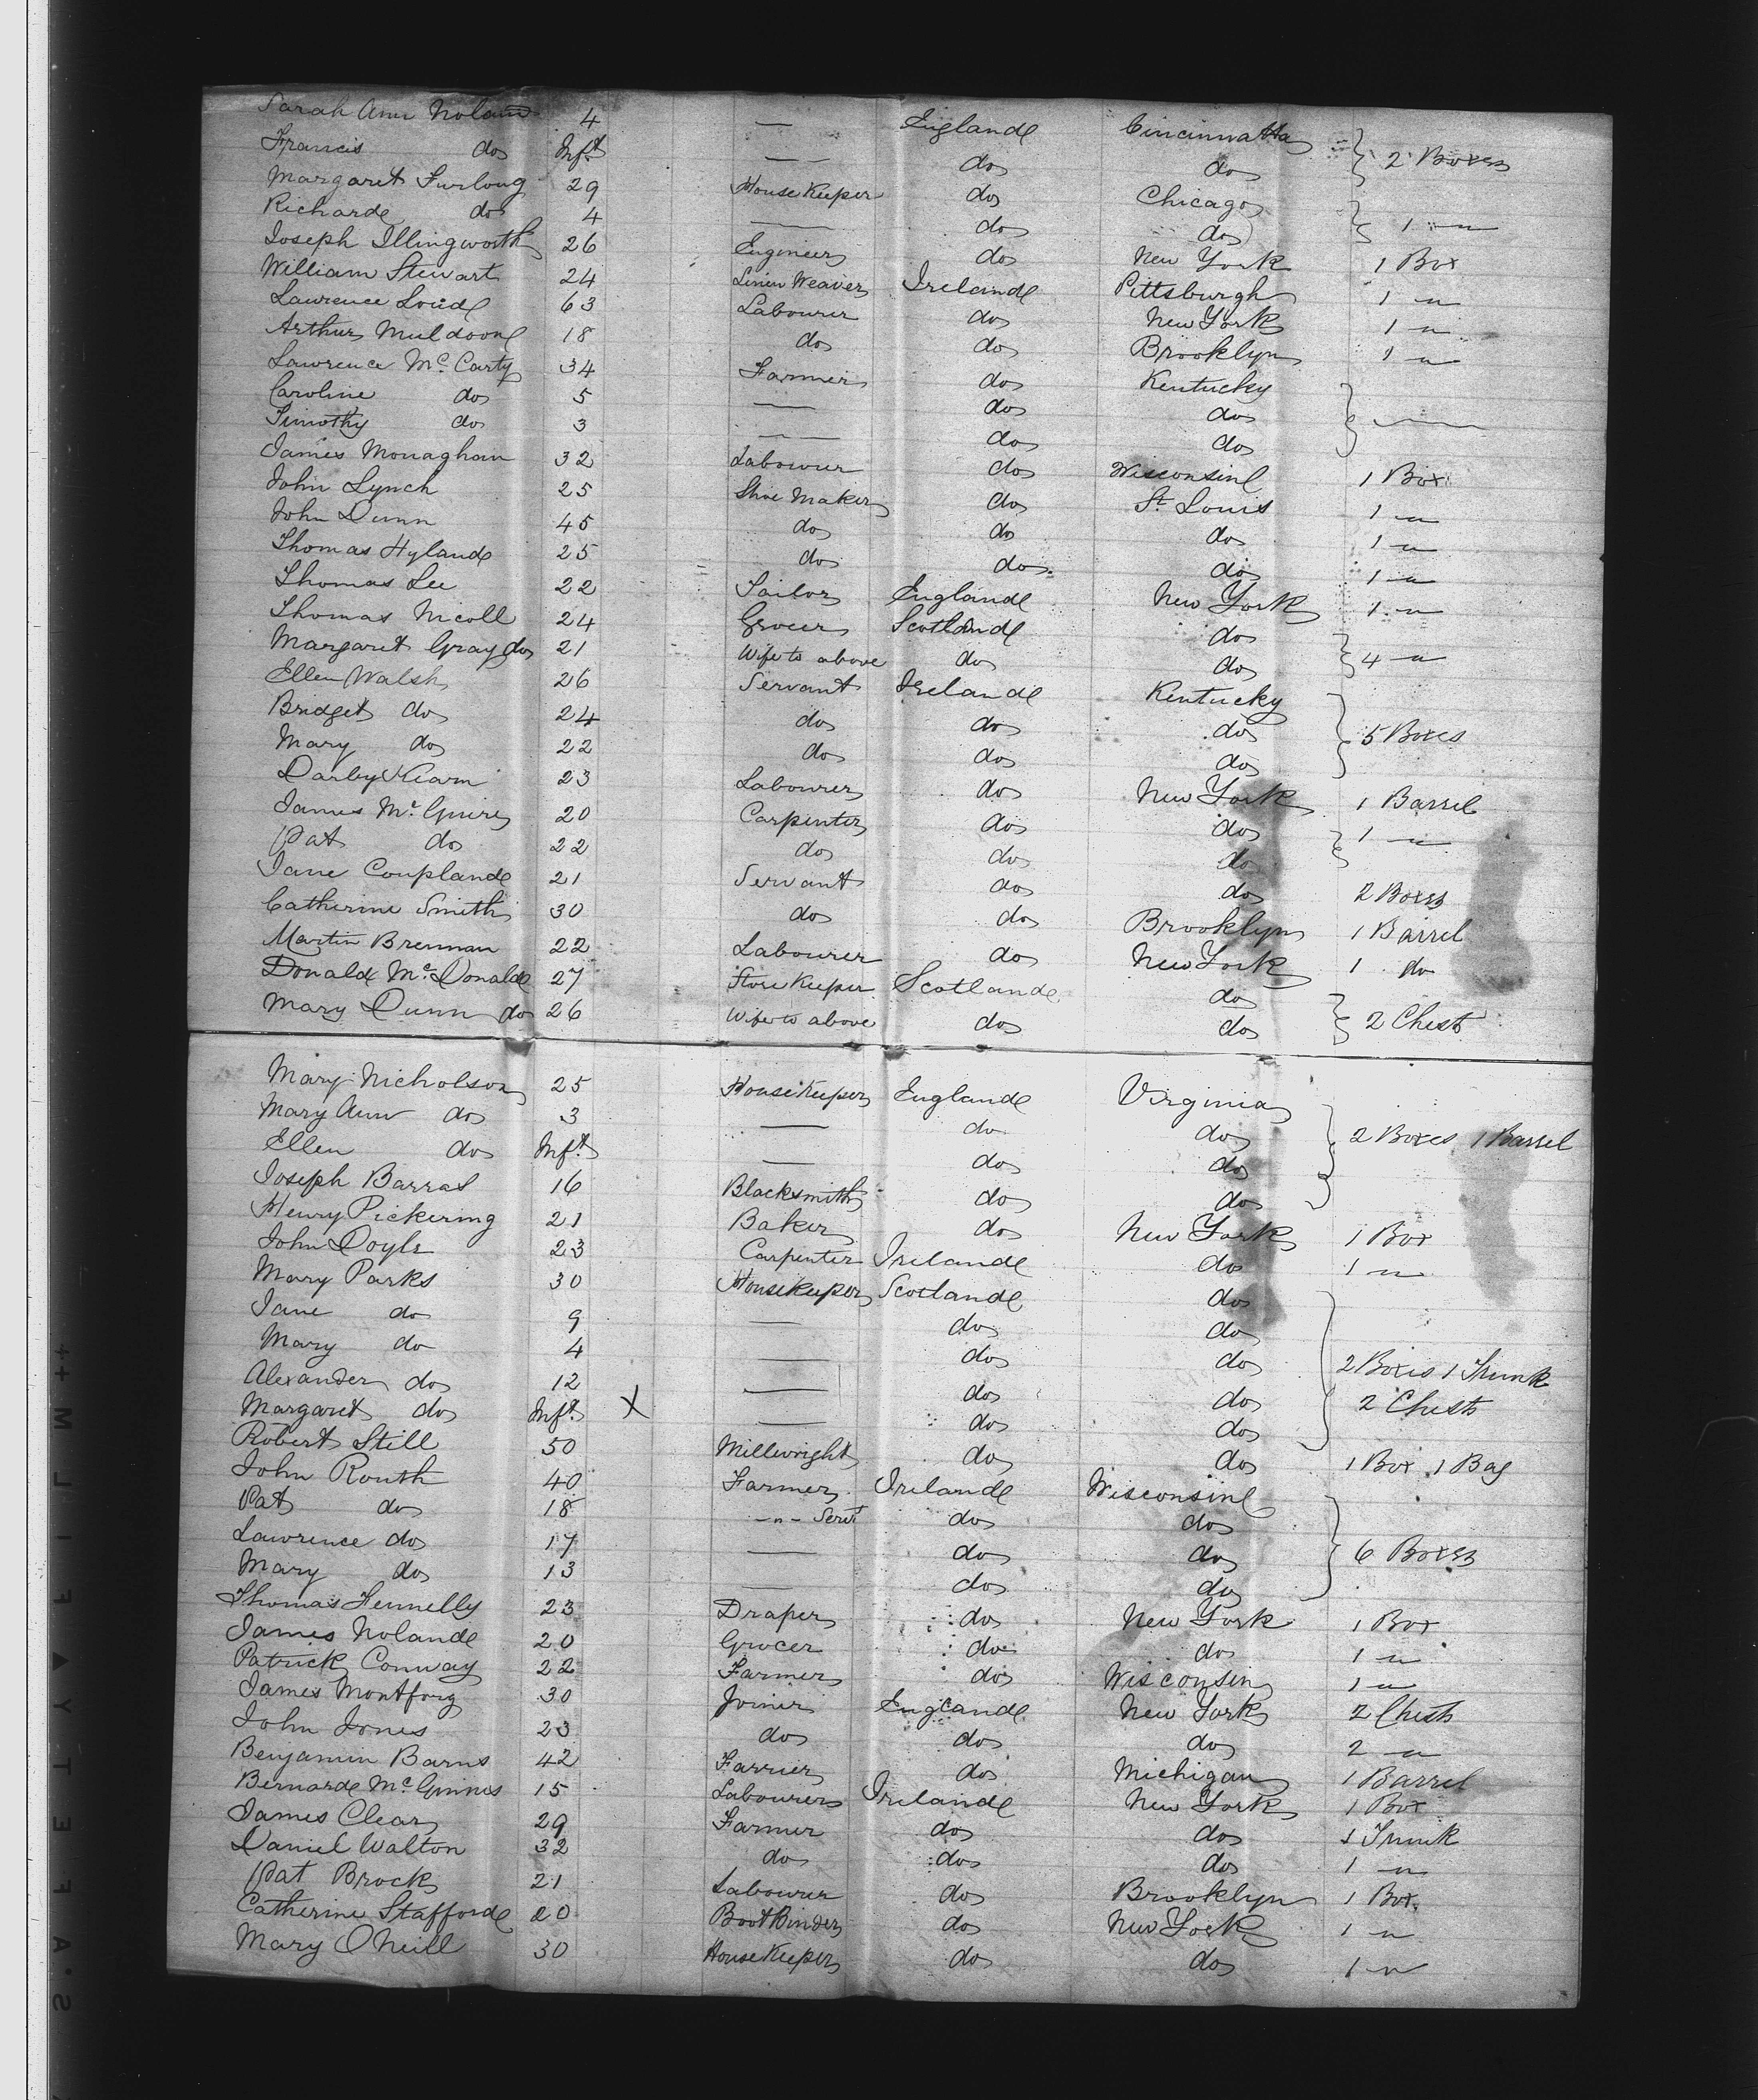 Sarah Ann Noland 4 — England Cincinnatta } 2 Boxes
Francis do Inft — do do
Margaret Furlong 29 House Keeper do Chicago } 1 "
Richard do 4 — do do
Joseph Illingworth 26 Engineer do New York 1 Box
William Stewart 24 Linen Weaver Ireland Pittsburgh 1 "
Lawrence Loud 63 Labourer do New York 1 "
Arthur Muldoon 18 do do Brooklyn 1 "
Lawrence Mc Carty 34 Farmer do Kentucky
Caroline do 5 — do do } —
Timothy do 3 — do do
James Monaghan 32 Labourer do Wisconsin 1 Box
John Lynch 25 Shoe Maker do St Louis 1 "
John Dunn 45 do do do 1 "
Thomas Hyland 25 do do do 1 "
Thomas Lee 22 Tailor England New York 1 "
Thomas Nicoll 24 Grocer Scotland do } 4 "
Margaret Gray do 21 Wife to above do do
Ellen Walsh 26 Servant Ireland Kentucky
Bridget do 24 do do do } 5 Boxes
Mary do 22 do do do
Darby Kearn 23 Labourer do New York 1 Barrel
James Mc Guire 20 Carpenter do do } 1 "
Pat do 22 do do do
Jane Coupland 21 Servant do do 2 Boxes
Catherine Smith 30 do do Brooklyn 1 Barrel
Martin Brennan 22 Labourer do New York 1 do
Donald Mc Donald 27 Store Keeper Scotland do } 2 Chest
Mary Dunn do 26 Wife to above do do
Mary Nicholson 25 House Keeper England Virginia
Mary Ann do 3 — do do } 2 Boxes 1 Barrel
Ellen do Inft — do do
Joseph Barras 16 Blacksmith do do
Henry Pickering 21 Baker do New York 1 Box
John Doyle 23 Carpenter Ireland do 1 "
Mary Parks 30 House Keeper Scotland do
Jane do 9 — do do
Mary do 4 — do do } 2 Boxes 1 Trunk
Alexander do 12 — do do 2 Chests
Margaret do Inft X — do do
Robert Still 50 Millwright do do 1 Box 1 Bag
John Routh 40 Farmer Ireland Wisconsin
Pat do 18 -"- Servt do do
Lawrence do 17 — do do } 6 Boxes
Mary do 13 — do do
Thomas Fennelly 23 Draper do New York 1 Box
James Noland 20 Grocer do do 1 "
Patrick Conway 22 Farmer do Wisconsin 1 "
James 30 Joiner England New York 2 Chests
John Jones 23 do do do 2 "
Benjamin Barns 42 Farrier do Michigan 1 Barrel
Bernard Mc Ginnes 15 Labourer Ireland New York 1 Box
James Clear 29 Farmer do do 1 Trunk
Daniel Walton 32 do do do 1 "
Pat Brock 21 Labourer do Brooklyn 1 Box
Catherine Stafford 20 Boot Binder do New York 1 "
Mary O Neill 30 House Keeper do do 1 "